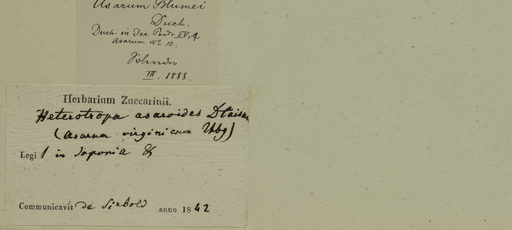 Asarum Blumei
Duch.
Duch. in Dec Prodr. XV, 1,
Asarum No. 10.
Solereder
III. 1888.
Herbarium Zuccarinii.
Heterotropa asaroides
(Asarum virginicum Thbg)
Legi in Japonia
Communicavit de Siebold anno 1842